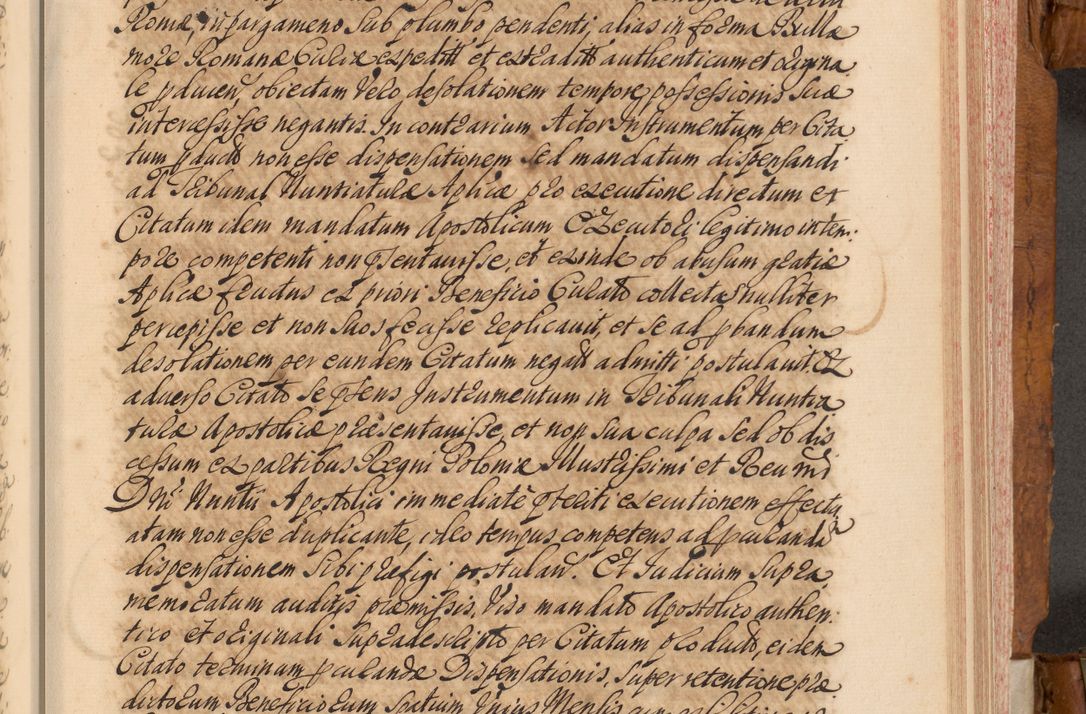 Romæ, in pargameno sub plumbo pendenti, alias in forma Bullæ
more Romanæ Curiæ expeditt et extraditt authenticum et origina
le pducen, obiectam vero desolationem tempore possessionis suæ
intercessisse negantis. In contrarium Actor Instrumentum per Cita
tum pductt non esse dispensationem sed mandatum dispensandi
ad Tribunal Nuntiaturæ Aplicæ pro executione directum et
Citatum idem mandatum Apostolicum Executori legitimo in tem:
pore competenti non psentavisse, et exinde ob abusum gratiæ
Aplicæ fructus ex priori Beneficio Curato collectas nulliter
percepisse et non suos fecisse replicavit, et se ad pbandum
desolationem per eundem Citatum negatt admitti postulavit. Et
adverso Citato se psens Instrumentum in Tribunali Nuntia
turæ Apostolicæ præsentavisse, et non sua culpa sed ob dis
cessum ex partibus Regni Poloniæ Illustrissimi et Reumi
Dni Nuntii Apostolici immediatè pteriti executionem effectu
atam non esse duplicante, ideo tempus competens ad pcuranda
dispensationem sibi præfigi postulan. Et Iudicium supra
memoratum auditis præmissis, viso mandato Apostolico authen:
tico et originali supradescripto per Citatum producto, eidem
Citato terminum pcurandæ Dispensationis, super retentione præ
dictorum Beneficiorum Spatium Unius Mensis